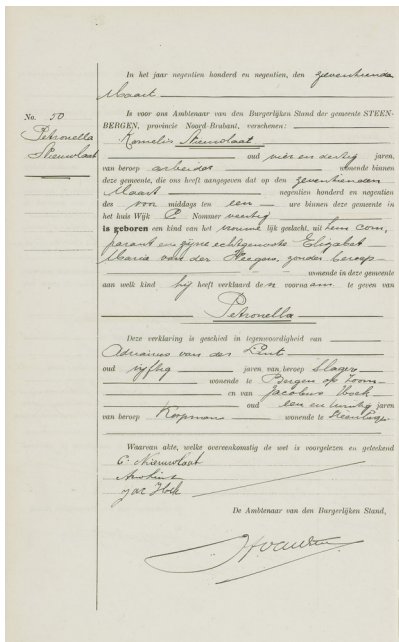 In het jaar negentien honderd en negentien, den zeventienden
Maart
No. 50
Petronella
Nieuwlaat
Is voor ons Ambtenaar van den Burgerlijken Stand der gemeente STEEN-
BERGEN, provincie Noord-Brabant, verschenen:
Kornelis Nieuwlaat
oud vier en dertig jaren,
van beroep arbeider wonende binnen
deze gemeente, die ons heeft aangegeven dat op den zeventienden
Maart negentien honderd en negentien
des voor middags ten een ure binnen deze gemeente in
het huis Wijk P Nommer veertig
is geboren een kind van het vrouwe lijk geslacht, uit hem com,
parant en zijne echtgenoote Elizabet
Maria van der Heegen, zonder beroep
wonende in deze gemeente
aan welk kind hij heeft verklaard de n voornaam te geven van
Petronella
Deze verklaring is geschied in tegenwoordigheid van
Adrianus van der Lint
oud vijftig jaren, van beroep Slager
wonende te Bergen op Zoom
en van Jacobus Hoek
oud een en twintig jaren
van beroep Koopman wonende te Steenbergen
Waarvan akte, welke overeenkomstig de wet is voorgelezen en geteekend
C. Nieuwlaat
Jac Hoek
De Ambtenaar van den Burgerlijken Stand,